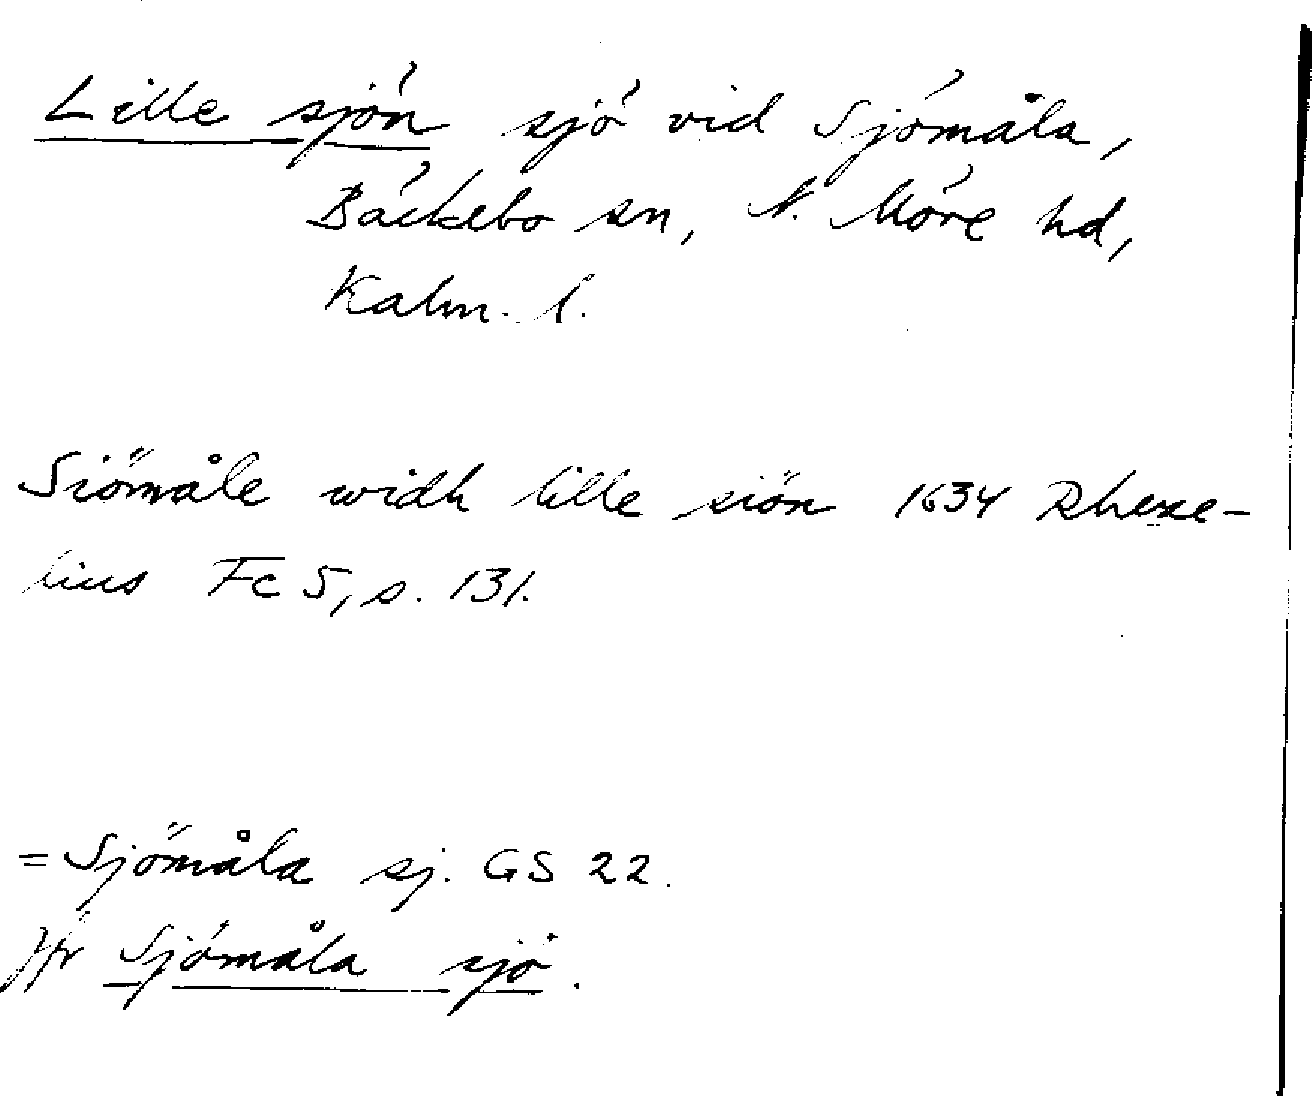 Lille sjön sjö vid Sjömåla,
Bäckebo sn, N. Möre hd,
Kalm. l.
Siömåle widh lille siön 1634 Rhexe-
lius Fc 5, s. 131.
= Sjömåla sj. GS 22.
Jfr Sjömåla sjö.